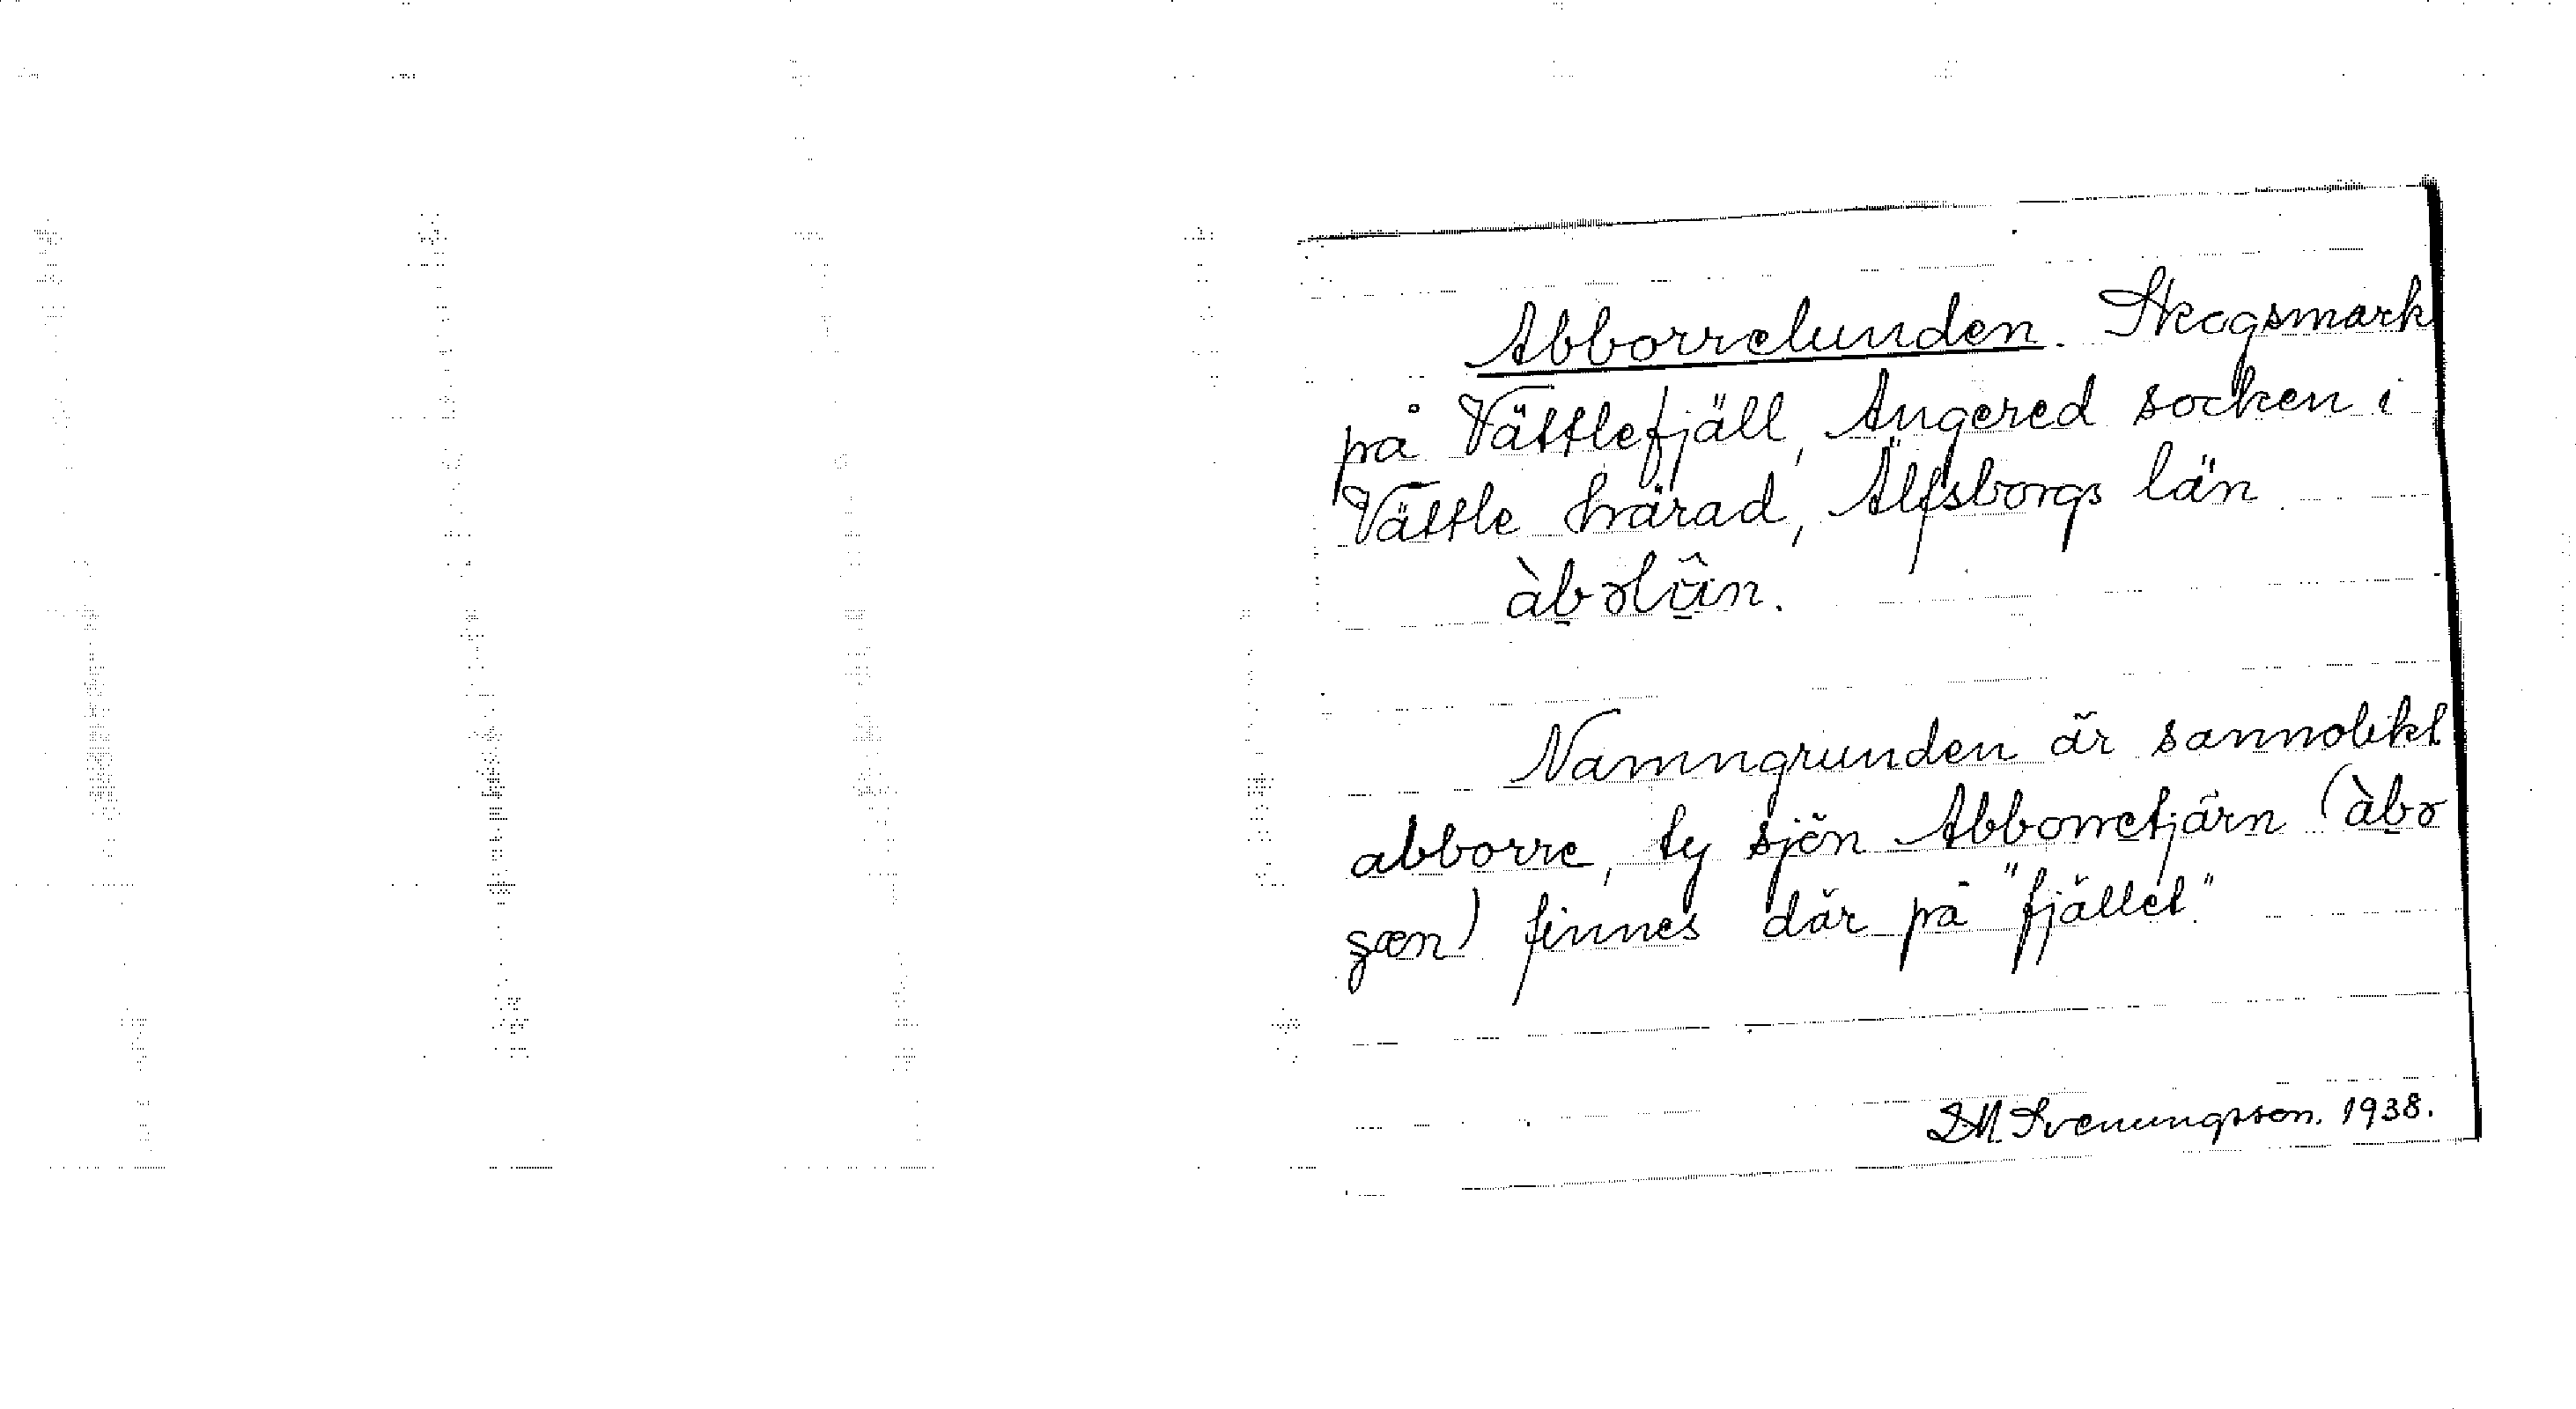 Abborrelunden. Skogsmark
på Vättlefjäll, Angered socken i
Vättle härad, Älfsborgs län
àbəlûn.
Namngrunden är sannolikt
abborre, ty sjön Abborretjärn (àbə
ʂæn) finnes där på "fjället."
D M Svenungsson. 1938.